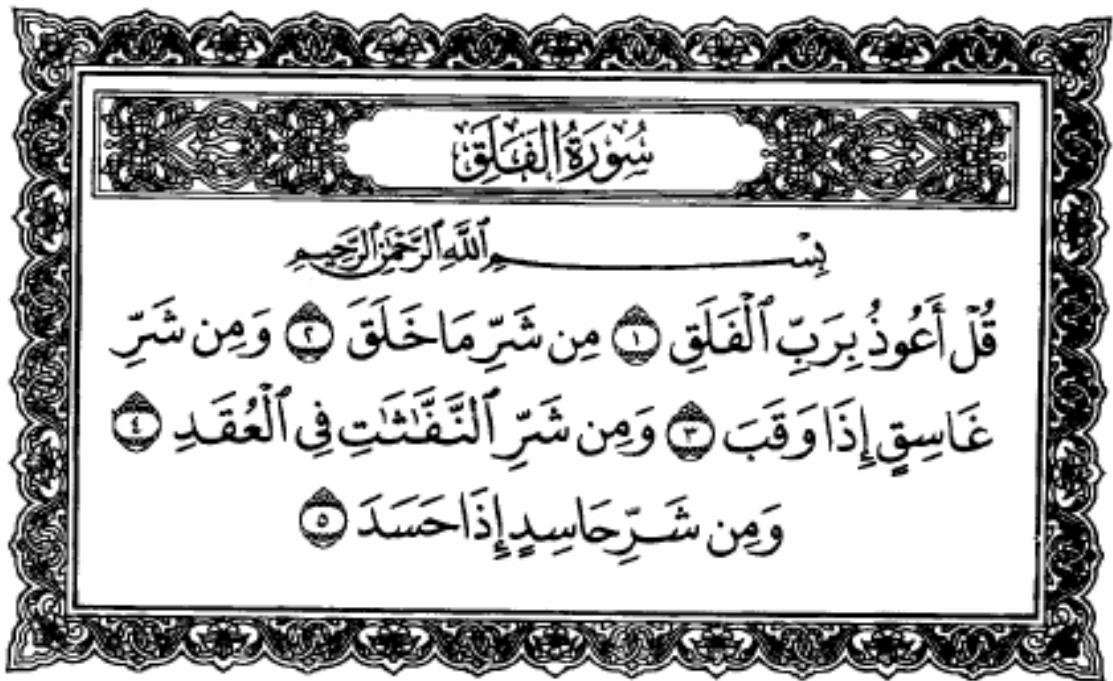 سُورَةُ الْفَلَقِ
بِسْمِ ٱللَّهِ ٱلرَّحْمَٰنِ ٱلرَّحِيمِ
قُلْ أَعُوذُ بِرَبِّ ٱلْفَلَقِ ١ مِن شَرِّ مَا خَلَقَ ٢ وَمِن شَرِّ
غَاسِقٍ إِذَا وَقَبَ ٣ وَمِن شَرِّ ٱلنَّفَّٰثَٰتِ فِى ٱلْعُقَدِ ٤
وَمِن شَرِّ حَاسِدٍ إِذَا حَسَدَ ٥